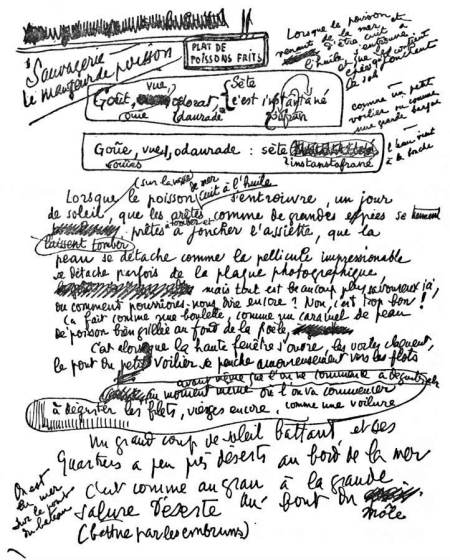 Sauvagerie
le mangeur de poisson
PLAT DE
POISSONS FRITS
Lorsque le poisson et
de la mer
d'être cuit à
l'huile s'entrouvre
comme un petit
voilier ou comme
une grande barque
l'eau vient
à la bouche
vue,
Goût, odorat, Sète
c'est instantané
ouïe daurade
Goûe, vue, odaurade : sète
ouïes instanstafrané
(sur la vague de mer
Lorsque le poisson cuit à l'huile s'entrouvre, un jour
de soleil, que les arêtes comme de grandes épées se
tomber et
prêtes à joncher l'assiette, que la
laissent tomber
peau se détache comme la pellicule impressionable
se détache parfois de la plaque photographique
mais tout est beaucoup plus savoureux ici,
ou comment pourrions-nous dire encore ? Non, c'est trop bon !
Ça fait comme une boulette, comme un caramel de peau
de poisson bien grillée au fond de la poêle,
C'est alors que la haute fenêtre s'ouvre, les voiles claquent,
le pont du petit voilier se penche amoureusement vers les flots
avant même que l'on ne commence à déguster
au moment même où l'on va commencer
à déguster les filets, vierges encore, comme une voilure
Un grand coup de soleil battant et des
Quartiers à peu près déserts au bord de la mer
C'est comme au gran à la grande
Salure Déserte au bout du
môle
(battue par les embruns)
On est
en mer
sur le pont
du bateau